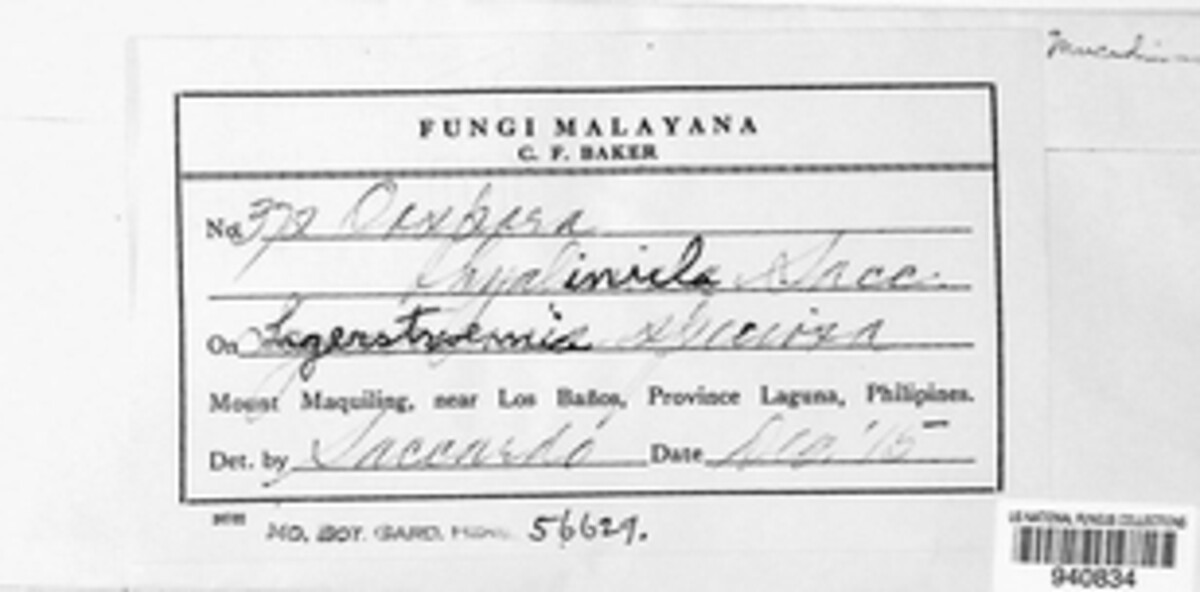 FUNGI MALAYANA
C. F. BAKER
No. 372 Oospora
hyalinula Sacc.
On Lagerstroemia speciosa
Mount Maquiling, near Los Baños, Province Laguna, Philipines.
Det. by Saccardo Date Dec '15
MO. BOT. GARD. 56629.
US NATIONAL FUNGUS COLLECTIONS
940834